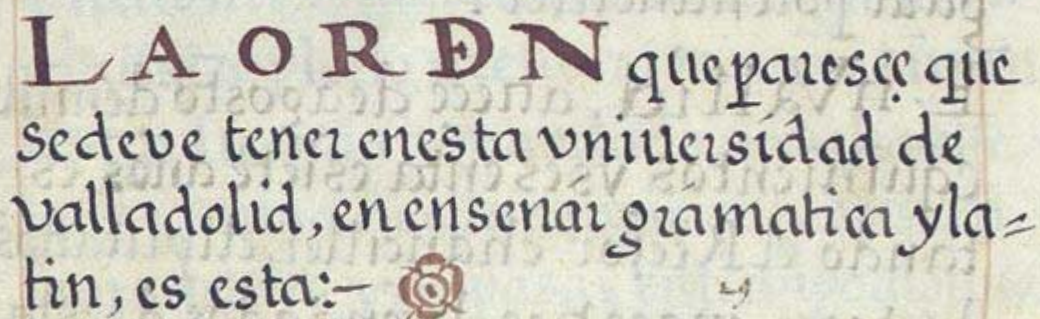 LA ORDEN que paresçe que
se deve tener en esta vniuersidad de
valladolid, en ensenar gramatica y la=
tin, es esta:-